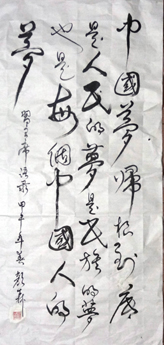 中國夢歸根到底
是人民的夢是民族的夢
也是每個中國人的
夢
甲午年